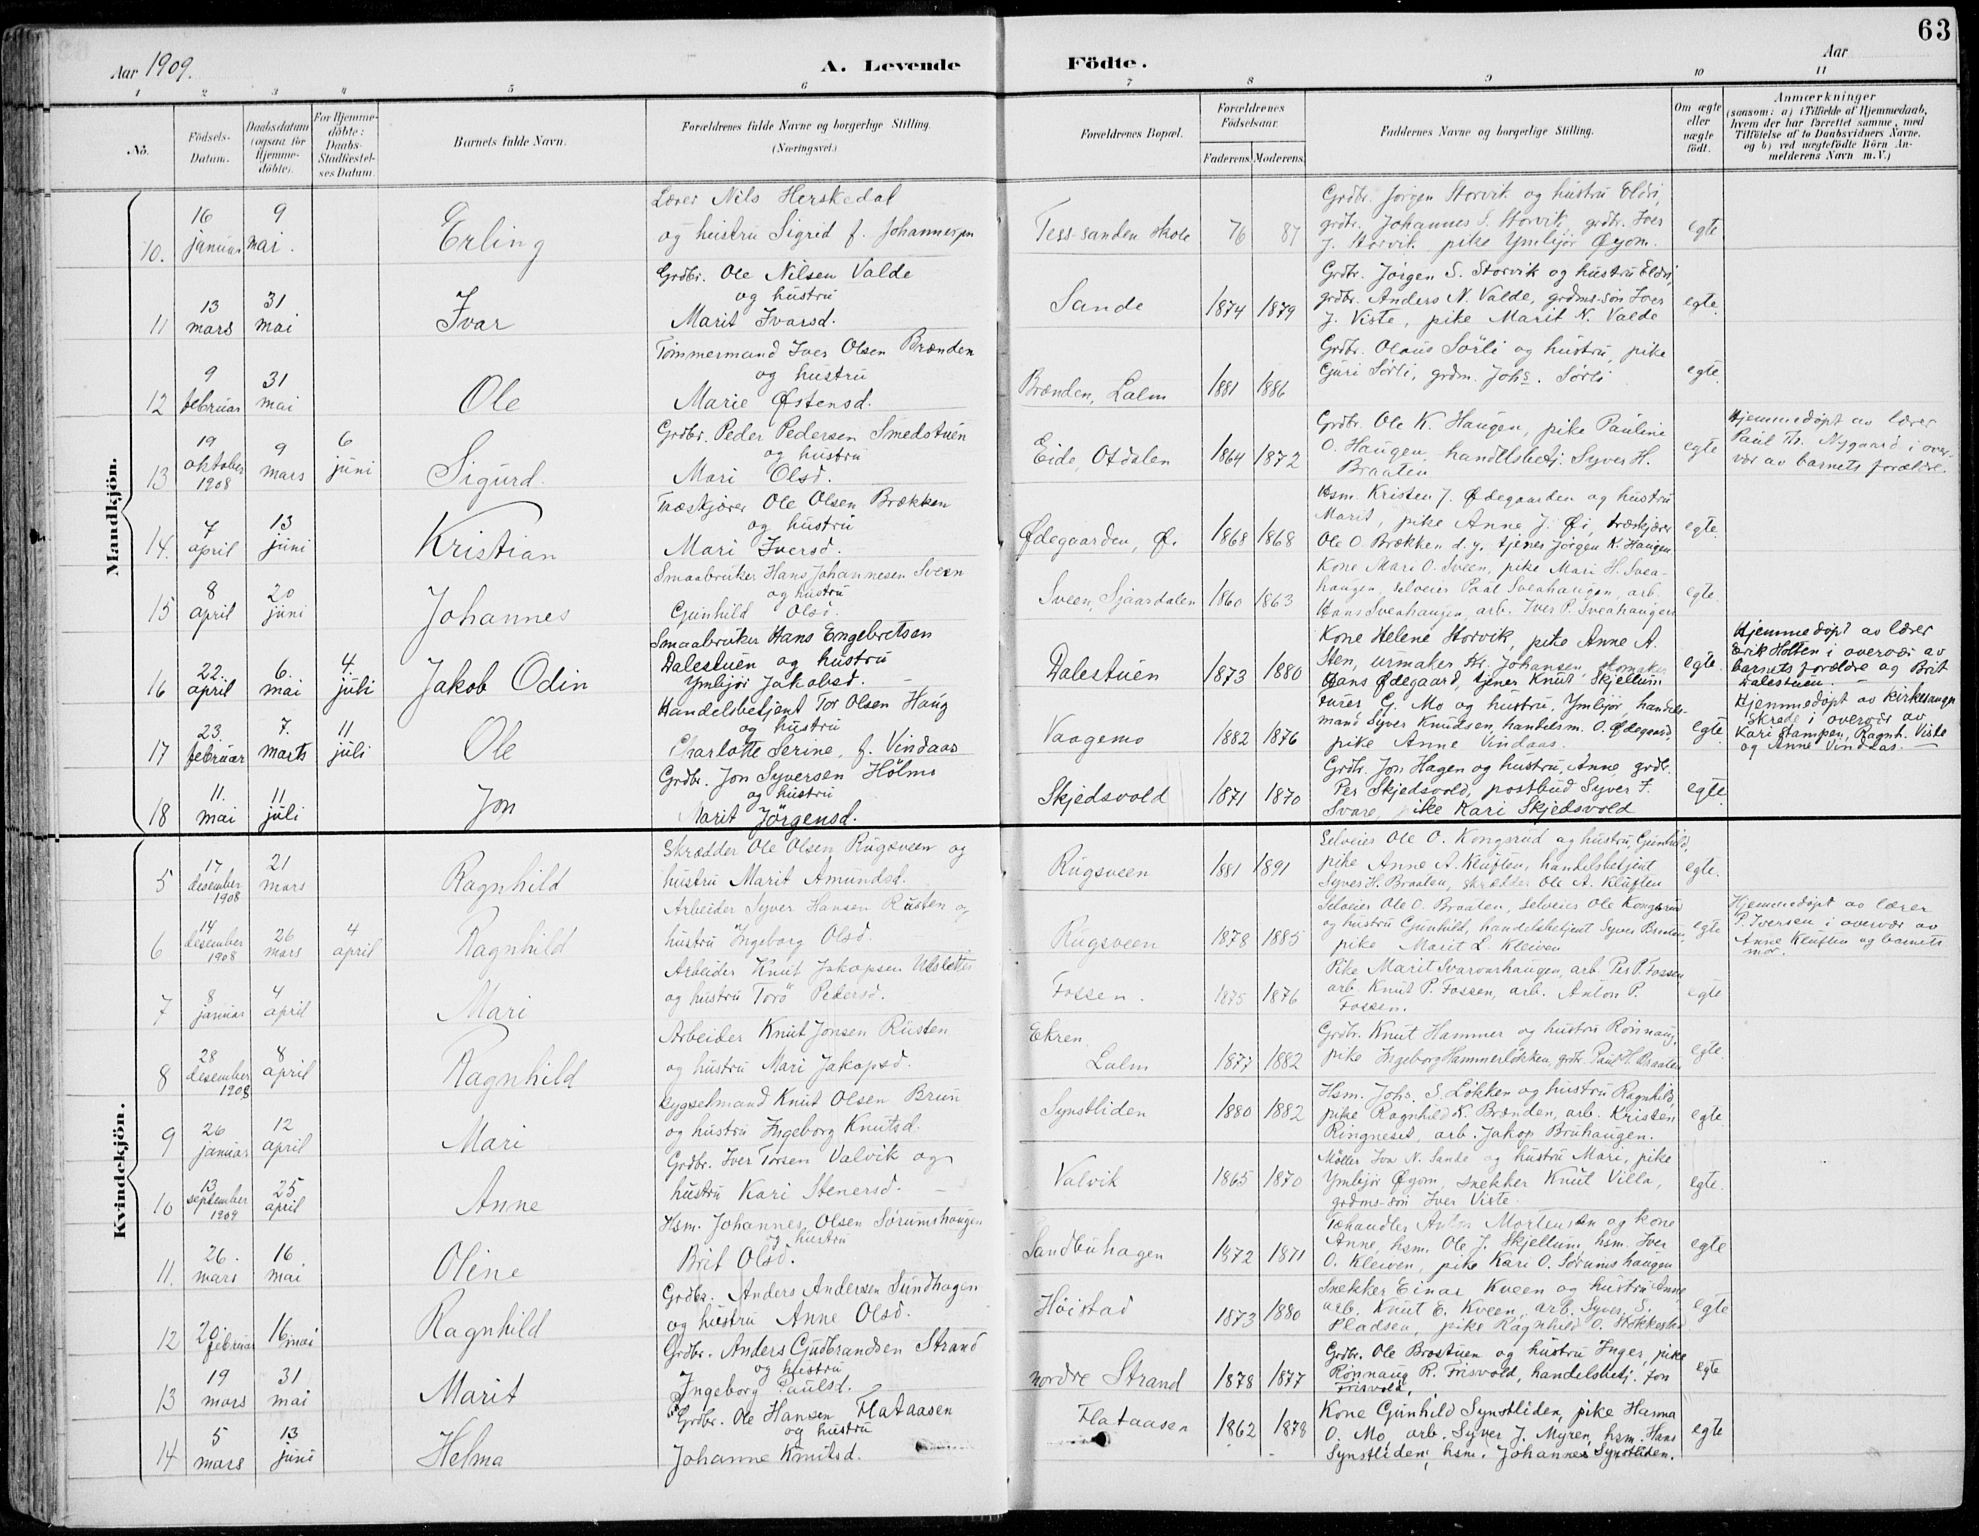 63
Aar 1909.
A. Levende
Födte.
Aar
1 2 3 4 5 6 7 8 9 10 11
No.
Födsels-
Datum.
Daabsdatum
(ogsaa for
Hjemme-
döbte).
For Hjemme-
döbte:
Daabs-
Stadfæstel-
ses Datum.
Barnets fulde Navn.
Forældrenes fulde Navne og borgerlige Stilling.
(Næringsvei.)
Forældrenes Bopæl.
Forældrenes
Födselsaar.
Faderens.
Moderens.
Faddernes Navne og borgerlige Stilling.
Om ægte
eller
uægte
födt.
Anmærkninger
(saasom: a) i Tilfælde af Hjemmedaab,
hvem der har forrettet samme, med
Tilföielse af to Daabsvidners Navne.
og b) ved uægtefödte Börn An-
melderens Navn m.V.)
Mandkjön.
10. 16 januar 9 mai. Erling
Lærer Nils Herskedal
og hustru Sigrid f. Johannesen
Tess-sanden skole 76 87
Grdbr. Jørgen Storvik og hustru Eldri,
grdbr. Johannes S. Storvik, grdbr. Iver
J. Storvik, pike Ymbjør Øyom.
egte
11 13 mars 31 mai Ivar
Grdbr. Ole Nilsen Valde
og hustru
Marit Ivarsd.
Sande 1874 1879
Grdbr. Jørgen S. Storvik og hustru Eldri,
grdbr. Anders N. Valde, grdms-søn Iver
J. Viste, pike Marit N. Valde
egte.
12 9 februar 31 mai Ole
Tømmermand Iver Olsen Brænden
og hustru
Marie Østensd.
Brænden, Lalm 1881 1886
Grdbr. Olaus Sørli og hustru, pike
Guri Sørli, grdm. Johs. Sørli
egte.
13 19 oktober 1908 9 mars 6 juni Sigurd
Grdbr. Peder Pedersen Smedstuen
og hustru
Mari Olsd.
Eide, Otdalen 1864 1872
Grdbr. Ole K. Haugen, pike Pauline
O. Haugen, handlsbetj. Syver H.
Braaten
egte
Hjemmedøpt av lærer
Paul Th. Nygaard i over-
vær av barnets forældre.
14. 7 april 13 juni Kristian
Træskjærer Ole Olsen Brækken
og hustru
Mari Iversd.
Ødegaarden, Ø. 1868 1868
Hsm. Kristen J. Ødegaarden og hustru
Marit, pike Anne J. Øi, træskjærer
Ole O. Brækken d.y. tjener Jørgen K. Haugen
egte.
15 8 april 20 juni Johannes
Smaabruker Hans Johannesen Sveen
og hustru
Gunhild Olsd.
Sveen, Sjaardalen 1860 1863
Kone Mari O. Sveen, pike Mari H. Svea-
haugen, selveier Paal Sveahaugen, arb.
Hans Sveahaugen, arb. Iver P. Sveahaugen
egte.
16 22. april 6. mai 4. juli Jakob Odin
Smaabruker Hans Engebretsen
Dalestuen og hustru
Ymbjør Jakobsd.
Dalestuen 1873 1880
Kone Helene Storvik, pike Anne A.
Sten, urmaker Th. Johansen,
Hans Ødegaard, tjener Knut Skjellum
egte.
Hjemmedøpt av lærer
Erik Holten i overvær av
barnets forældre og Brit
Dalestuen.
17 23. februar 7. marts 11 juli Ole
Handelsbetjent Tor Olsen Haug
og hustru
Charlotte Serine, f. Vindaas
Vaagemo 1882 1876
furer G. Mo og hustru, Ymbjør, handels-
mand Syver Knudsen, handelsm. O. Ødegaard,
pike Anne Vindaas.
egte.
Hjemmedøpt av kirkesanger
Skrede i overvær av
Kari Stampen, Ragnh. Viste
og Anne Vindaas.
18 11. mai 11 juli Jon
Grdbr. Jon Syversen Holmo
og hustru
Marit Jörgensd.
Skjedsvold 1871 1870
Grdbr. Jon Hagen og hustru, Anne, grdbr.
Per Skjedsvold, postbud Syver F.
Svare, pike Kari Skjedsvold
egte.
Kvindekjön.
5 17 desember 1908 21 mars Ragnhild
Skrædder Ole Olsen Rugsveen og
hustru Marit Amundsd.
Rugsveen 1881 1891
Selveier Ole O. Kongsrud og hustru Gunhild,
pike Anne A. Kluften, handelsbetjent
Syver H. Braaten, skrædder Ole A. Kluften
egte.
6 14 desember 1908 26 mars 4 april Ragnhild
Arbeider Syver Hansen Rusten og
hustru Ingeborg Olsd.
Rugsveen 1878 1885
Selveier Ole O. Braaten, selveier Ole Kongsrud
og hustru Gunhild, handelsbetjent Syver Braaten,
pike Marit L. Kleiven
egte
Hjemmedøpt av lærer
P. Iversen i overvær av
Anne Kluften og barnets
mor.
7 8 januar 4 april Mari
Arbeider Knut Jakopsen Uldslette
og hustru Torø Pedersd.
Fossen. 1875 1876
Pike Marit Svarvarhaugen, arb. Per P. Fossen
arb. Knut P. Fossen, arb. Anton P.
Fossen.
egte
8 28 desember 1908 8 april Ragnhild
Arbeider Knut Jonsen Rusten
og hustru Mari Jakopsd.
Ekren,
Lalm 1877 1882
Grdbr. Knut Hammer og hustru Rønnaug,
pike Ingeborg Hammerløkken, grdbr. Paul H. Braaten
egte.
9 26 januar 12 april Mari
Bygselmand Knut Olsen Brun
og hustru Ingeborg Knutsd.
Synstliden 1880 1882
Hsm. Johs. S. Løkken og hustru Ragnhild,
pike Ragnhild K. Brænden, arb. Kristen
Ringneset, arb. Jakop Bruhaugen.
egte.
10 13 september 1909 25 april Anne
Grdbr. Iver Torsen Valvik og
hustru Kari Stenersd.
Valvik 1865 1870
Møller Iva N. Sande og hustru Mari, pike
Ymbjør Øyom, snekker Knut Villa,
grdms-søn Iver Viste.
egte.
11. 26. mars 16. mai. Oline
Hsm. Johannes Olsen Sørumshaugen
og hustru
Brit Olsd.
Sandbuhagen 1872 1871
Anton Mortensen og kone
Anne, hsm. Ole J. Skjellum, hsm. Iver
O. Kleiven, pike Kari O. Sørumshaugen
egte
12 20. februar 16 mai Ragnhild
Grdbr. Anders Andersen Sundhagen
og hustru Anne Olsd.
Høistad 1873 1880
Snekker Einar Kveen og hustru Anne,
arb. Knut E. Kveen, arb. Syver S.
Pladsen, pike Ragnhild O. Stokkestad
egte
13 19 mars 31 mai Marit
Grdbr. Anders Gudbrandsen Strand
og hustru
Ingeborg Paulsd.
nordre Strand 1878 1877
Grdbr. Ole Brostuen og hustru Inger, pike
Rønnaug R. Frisvold, handelsbetj. Jon
Frisvold.
egte
14 5 mars 13 juni Helma
Grdbr. Ole Hansen Flataasen
og hustru
Johanne Knutsd.
Flataasen 1862 1878
Kone Gunhild Synstliden, pike Hanna
O. Mo, arb. Syver J. Myren, hsm. Hans
Synstliden, hsm. Johannes Synstliden.
egte